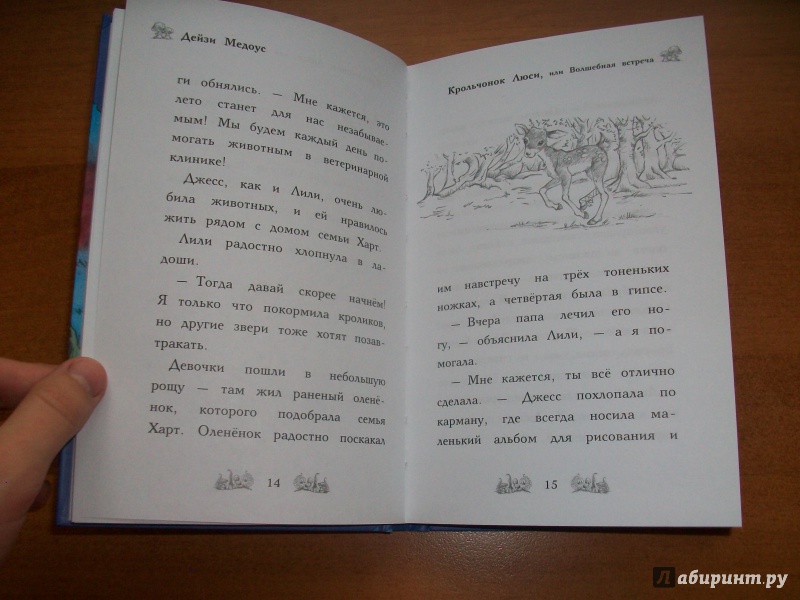 Дейзи Медоус
ги обнялись. — Мне кажется, это
лето станет для нас незабывае-
мым! Мы будем каждый день по-
могать животным в ветеринарной
клинике!
Джесс, как и Лили, очень лю-
била животных, и ей нравилось
жить рядом с домом семьи Харт.
Лили радостно хлопнула в ла-
доши.
— Тогда давай скорее начнём!
Я только что покормила кроликов,
но другие звери тоже хотят позав-
тракать.
Девочки пошли в небольшую
рощу — там жил раненый оленё-
нок, которого подобрала семья
Харт. Оленёнок радостно поскакал
14
Крольчонок Люси, или Волшебная встреча
им навстречу на трёх тоненьких
ножках, а четвёртая была в гипсе.
— Вчера папа лечил его но-
гу, — объяснила Лили, — а я по-
могала.
— Мне кажется, ты всё отлично
сделала. — Джесс похлопала по
карману, где всегда носила ма-
ленький альбом для рисования и
15
Лабиринт.ру